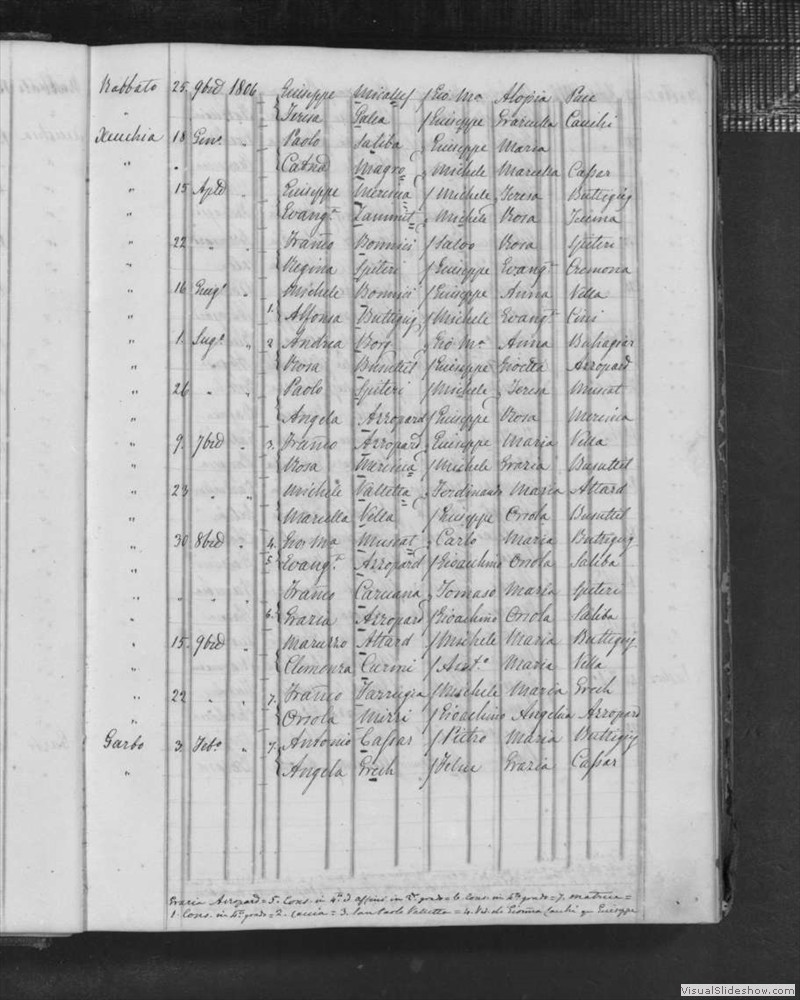 Rabbato 25 9bre 1806 Giuseppe Micallef / Gio. Ma. Aloisia Pace
" Teresa Galea / Giuseppe Graziulla Cauchi
Xeuchia 18 Gen.o " Paolo Saliba / Giuseppe Maria
" Catna Magro / Michele Marietta Cassar
" 15 Aple " Giuseppe Mercieca / Michele Teresa Buttigig
" Evang.a Zammit / Michele Rosa
" 22 " " Franco Bonnici / Salvo Rosa Spiteri
" Regina Spiteri / Giuseppe Evang.a Cremona
" 16 Giug.o " Michele Bonnici / Giuseppe Anna Villa
" 1. Alfonsa Buttigig / Michele Evang.a Cini
" 1. Lug.o " 2 Andrea Borg / Gio Ma. Anna Buhagiar
" Rosa Busuttil / Giuseppe Arropard
" 26 " " Paolo Spiteri / Michele Teresa Muscat
" Angela Arropard / Giuseppe Rosa
" 9. 7bre " 3. Franco Arropard / Giuseppe Maria Villa
" Rosa / Michele Grazia Busuttil
" 23 " " Michele Valletta / Ferdinando Maria Attard
" Mariella Villa / Giuseppe Orsola Busuttil
" 30 8bre " 4. Gio Ma Muscat / Carlo Maria Buttigig
" 5 Evang.a Arropard / Gioachino Orsola Saliba
" " " " Franco Caruana / Tomaso Maria Spiteri
" 6. Grazia Arropard / Gioachino Orsola Saliba
" 15. 9bre " Mauzzo Attard / Michele Maria Buttigig
" Clemenza Curmi / Ant.o Maria Villa
" 22 " " 7. Franco Farrugia / Michele Maria Grech
" Orsola Mizzi / Gioachino Angelica Arropard
Garbo 3. Feb.o " 7. Antonio Cassar / Pietro Maria Buttigig
" Angela Grech / Felice Grazia Cassar
Grazia Arropard = 5. Cons. in 4.o d affini. in 2.o grado = 6. Cons. in 4.to grado = 7. Matrice =
1. Cons. in 4.o grado = 2. = 3. San Paolo Valletta = 4. Ved. di Cauchi q.m Giuseppe
VisualSlideshow.com